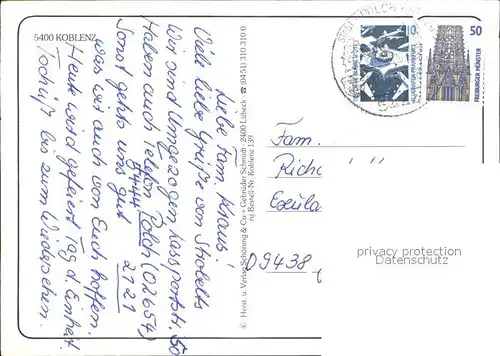 5400 KOBLENZ
Liebe Fam. Kraus!
Viele liebe Grüße von Strobelts
Wir sind umgezogen Kassportstr. 50
Haben auch Telefon Polch (02654)
5444 2121
Sonst gehts uns gut
was wir auch von Euch hoffen.
Heute wird gefeiert Tag d. Einheit
Tschüß bis zum Wiedersehen.
© Herst. u. Verlag Schöning & Co + Gebrüder Schmidt · 2400 Lübeck · ☎ (0451) 310 310 0
nz Bestell-Nr. Koblenz 139
10
50
FREIBURGER MÜNSTER
POLCH
Fam.
Richa
Exula
09438
privacy protection
Datenschutz